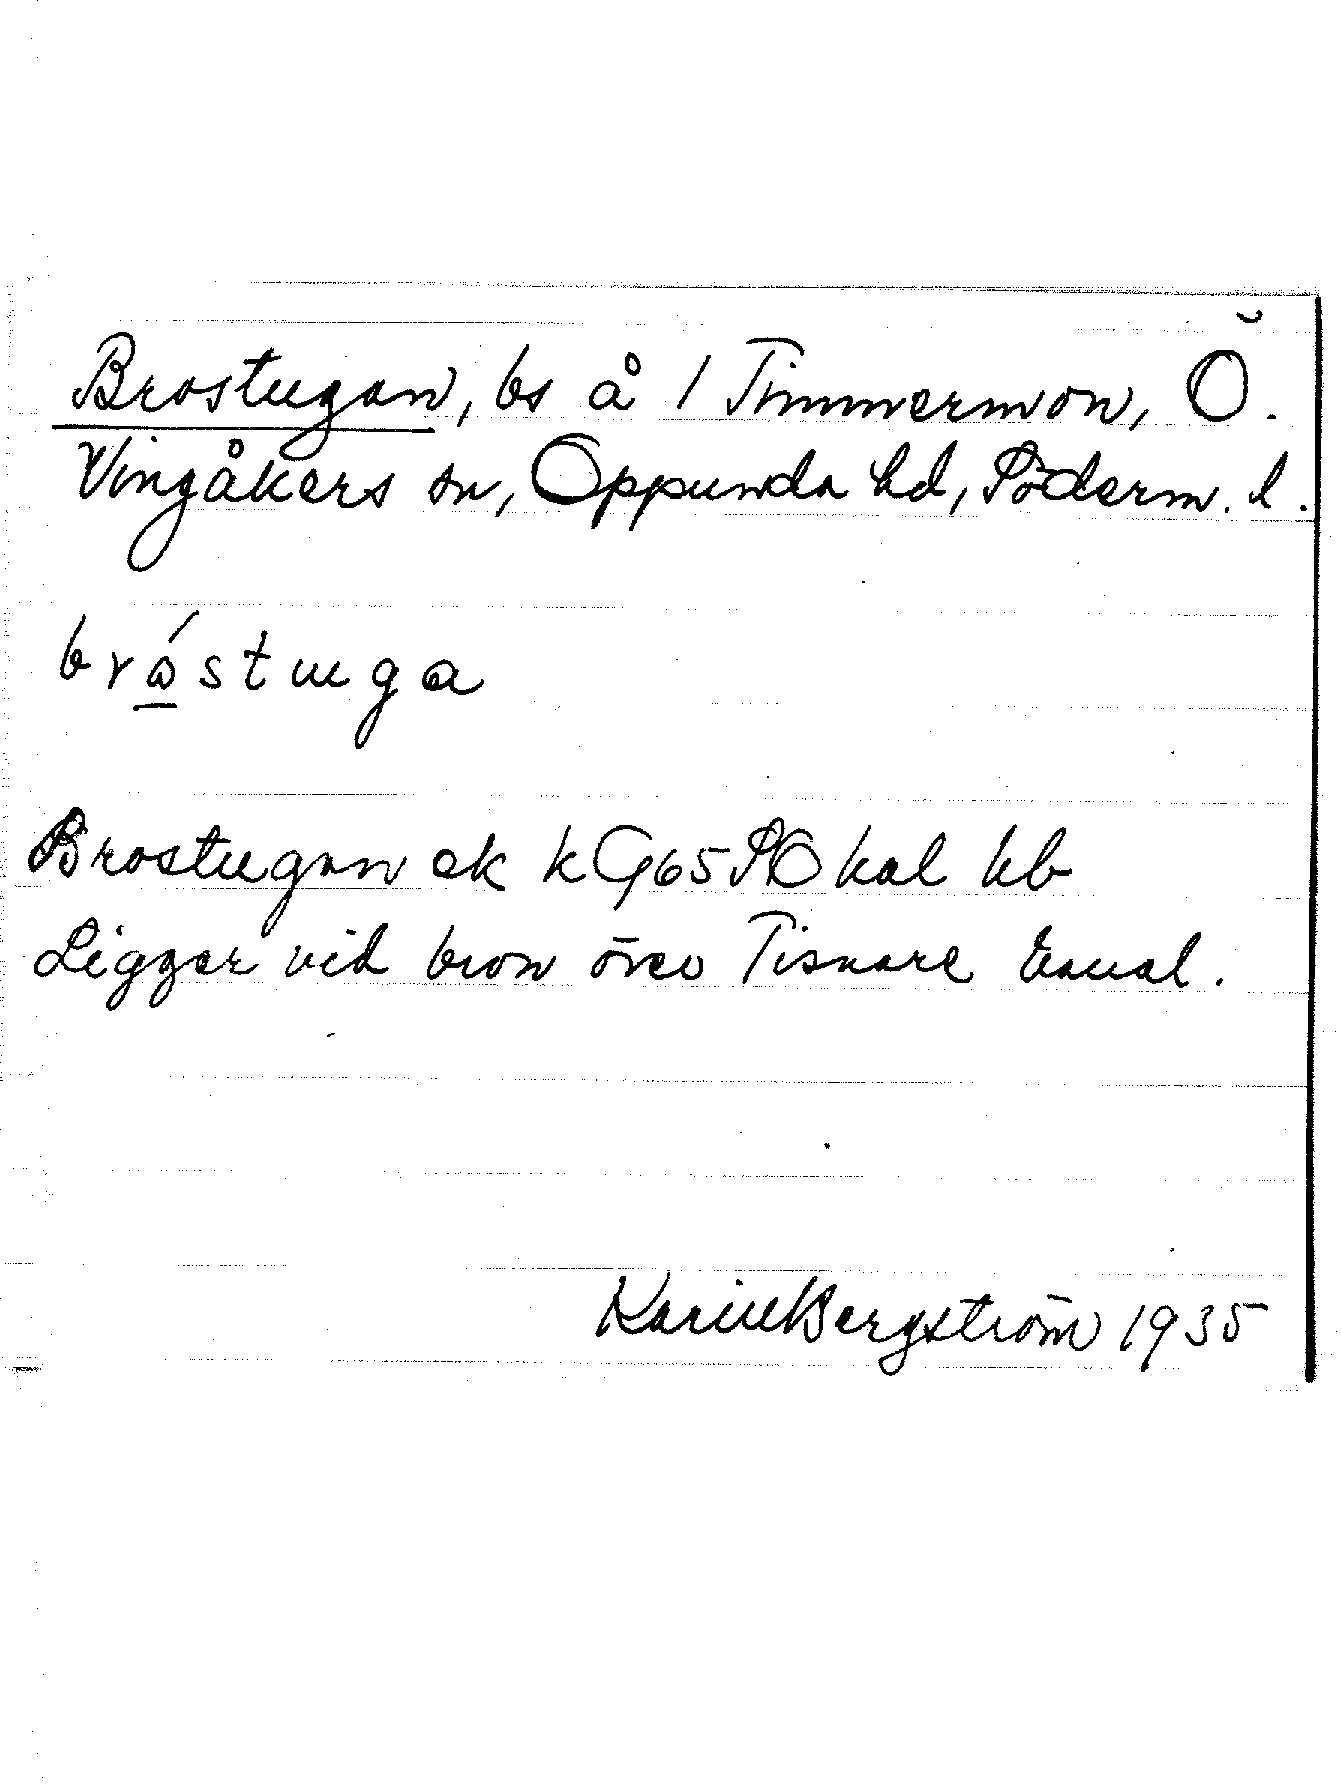 Brostugan, bs å 1 Timmermon, Ö.
Vingåkers sn, Oppunda hd, Söderm. l.
brǻ̲stuga
Brostugan ek k G65 SO kal hb
Ligger vid bron över Tisnare kanal.
Karin Bergström 1935